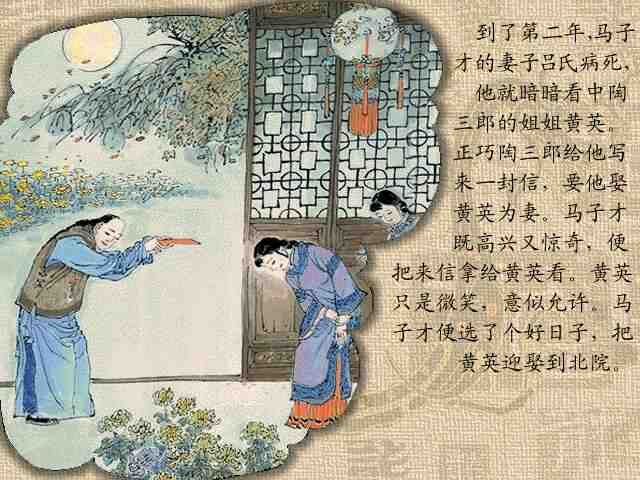 到了第二年，马子
才的妻子吕氏病死，
他就暗暗看中陶
三郎的姐姐黄英。
正巧陶三郎给他写
来一封信，要他娶
黄英为妻。马子才
既高兴又惊奇，便
把来信拿给黄英看。黄英
只是微笑，意似允许。马
子才便选了个好日子，把
黄英迎娶到北院。